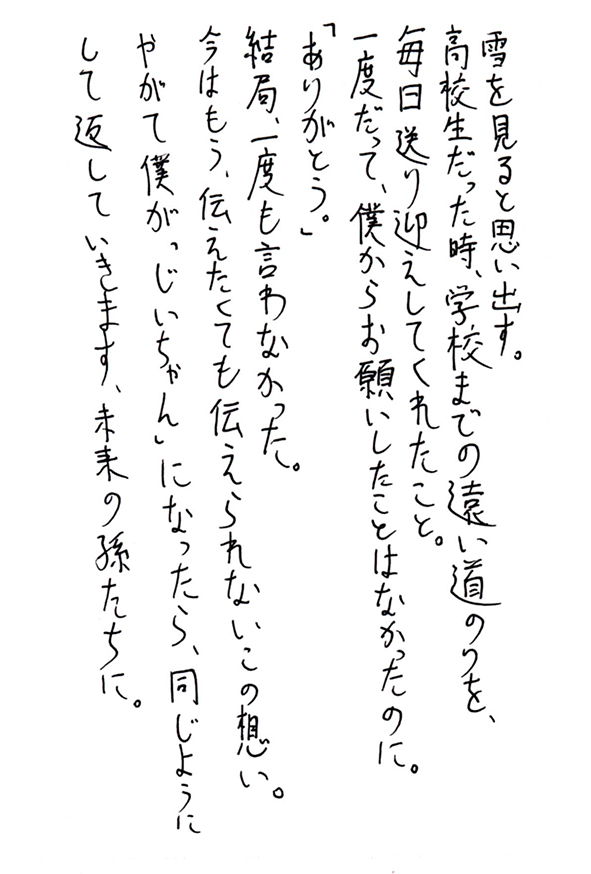 雪を見ると思い出す。
高校生だった時、学校までの遠い道のりを、
毎日送り迎えしてくれたこと。
一度だって、僕からお願いしたことはなかったのに。
「ありがとう。」
結局、一度も言わなかった。
今はもう、伝えたくても伝えられないこの想い。
やがて僕が「じいちゃん」になったら、同じように
して返していきます、未来の孫たちに。